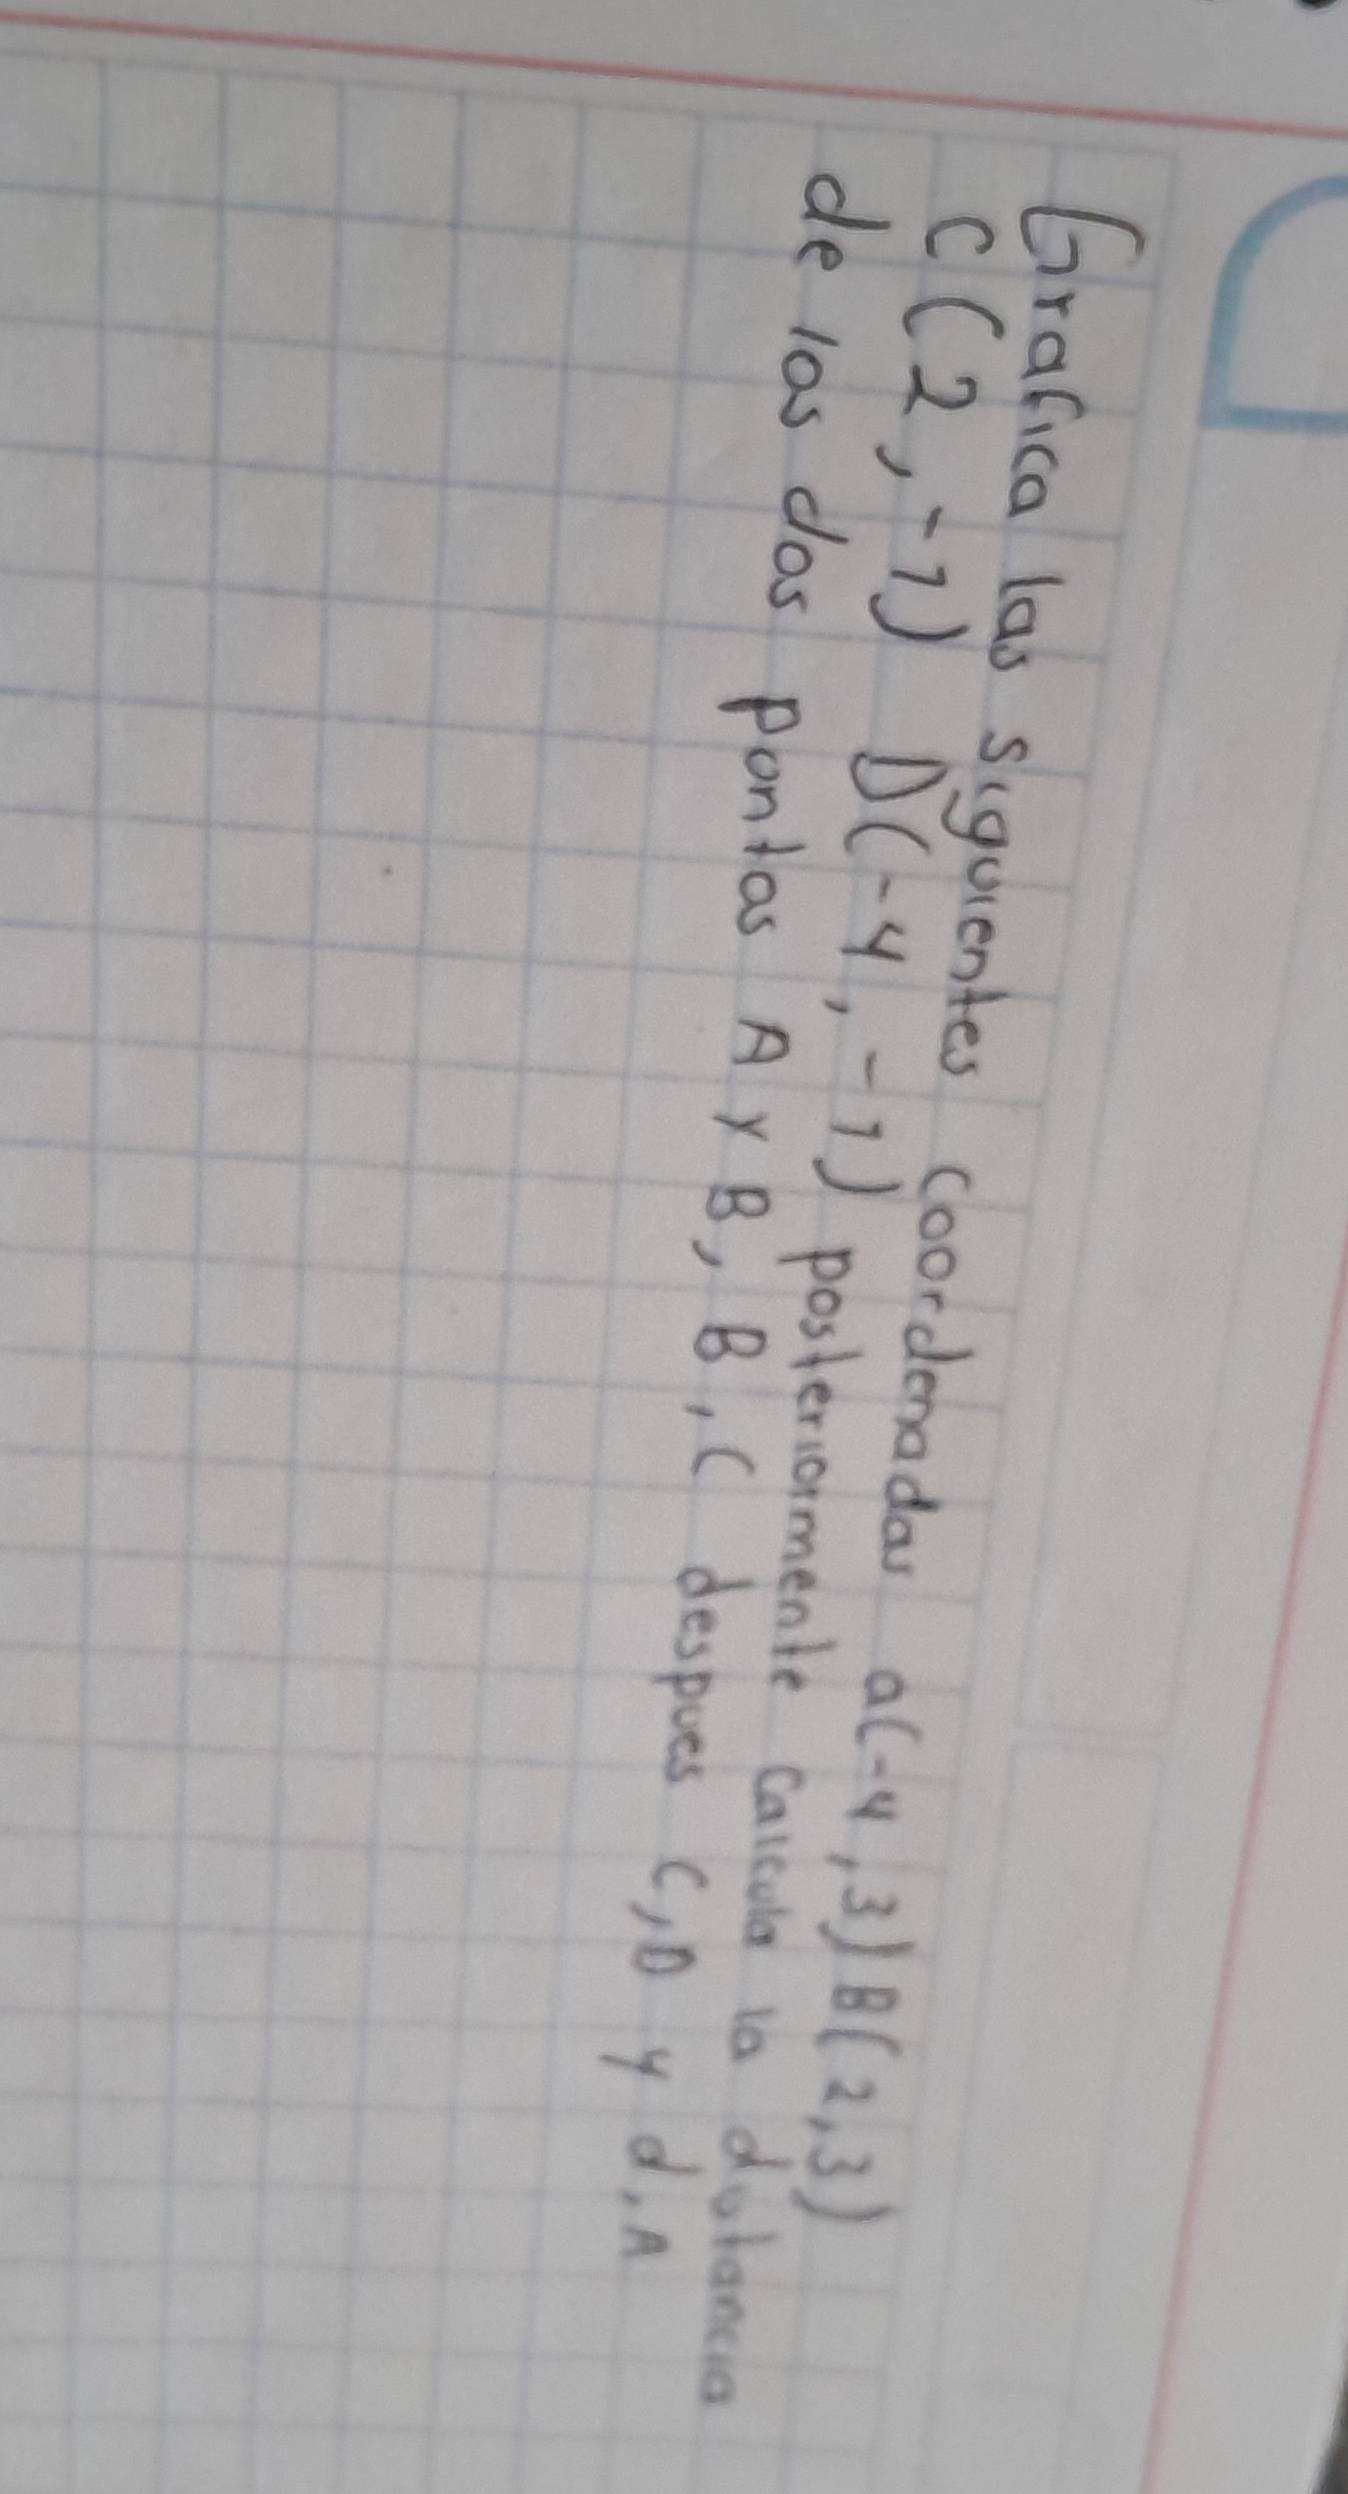 Grafica las siguientes coordenadas a(-4,3) B(2,3)
C(2,-1) D(-4,-1) posteriormente Calcula la distancia
de los dos pontos A y B, B,C despues C,D y d,A